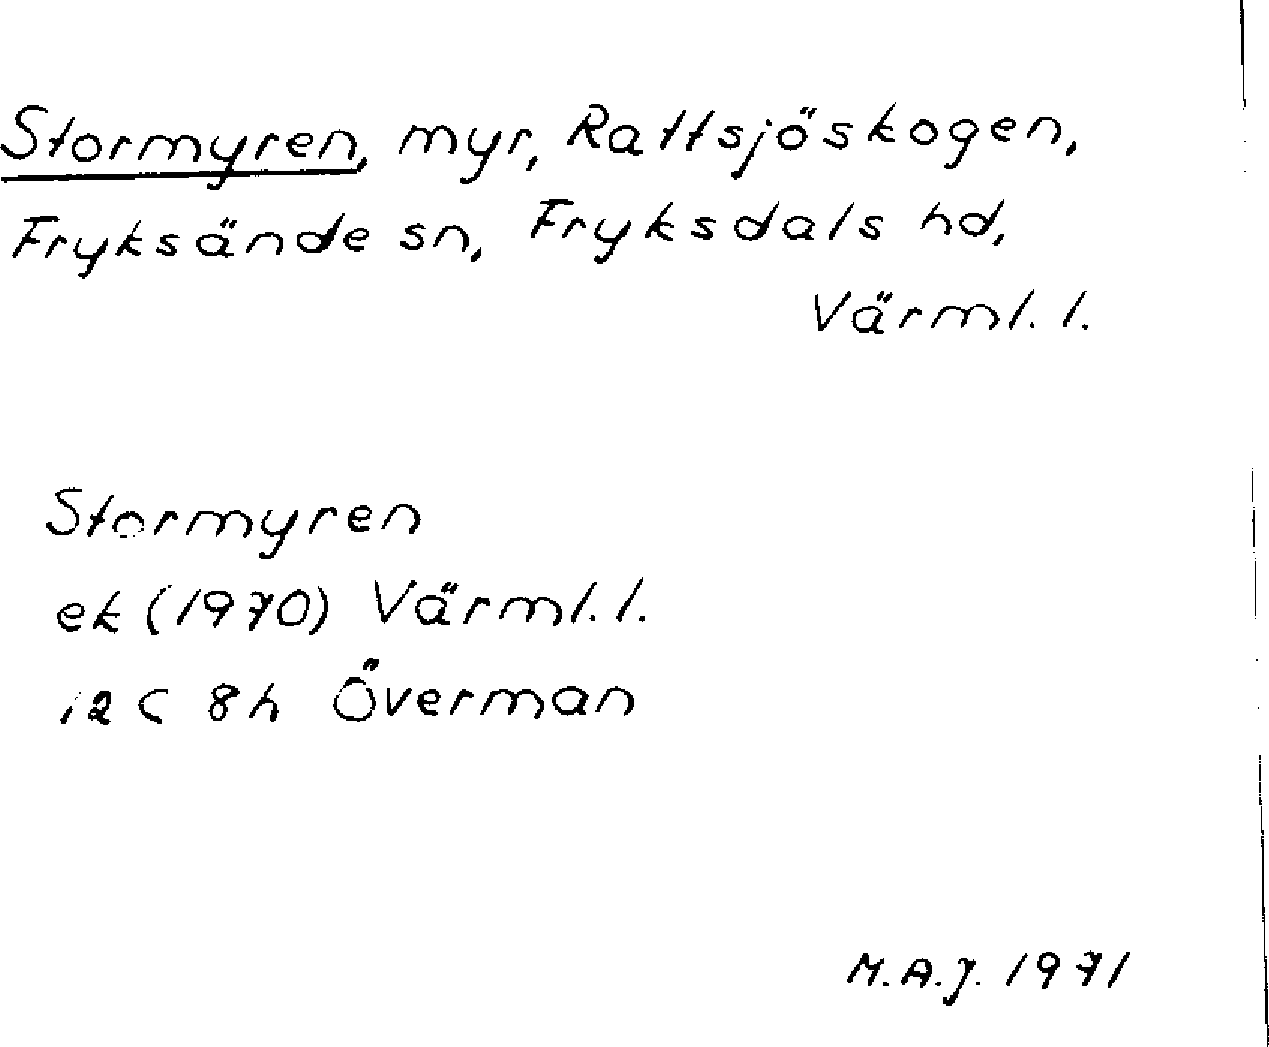 Stormyren, myr, Rattsjöskogen,
Fryksände sn, Fryksdals hd,
Värml. l.
Stormyren
ek (1970) Värml. l.
12 C 8h Överman
M.A.J. 1971